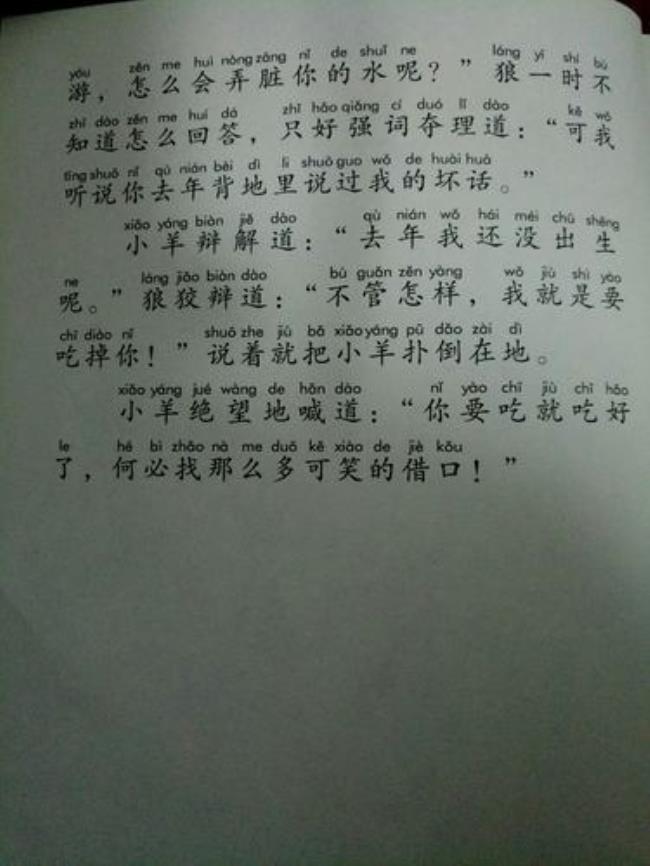 yóu zěn me huì nòng zāng nǐ de shuǐ ne láng yì shí bù
游，怎么会弄脏你的水呢？”狼一时不
zhī dào zěn me huí dá zhǐ hǎo qiǎng cí duó lǐ dào kě wǒ
知道怎么回答，只好强词夺理道：“可我
tīng shuō nǐ qù nián bèi dì li shuō guo wǒ de huài huà
听说你去年背地里说过我的坏话。”
xiǎo yáng biàn jiě dào qù nián wǒ hái méi chū shēng
小羊辩解道：“去年我还没出生
ne láng jiǎo biàn dào bù guǎn zěn yàng wǒ jiù shì yào
呢。”狼狡辩道：“不管怎样，我就是要
chī diào nǐ shuō zhe jiù bǎ xiǎo yáng pū dǎo zài dì
吃掉你！”说着就把小羊扑倒在地。
xiǎo yáng jué wàng de hǎn dào nǐ yào chī jiù chī hǎo
小羊绝望地喊道：“你要吃就吃好
le hé bì zhǎo nà me duō kě xiào de jiè kǒu
了，何必找那么多可笑的借口！”